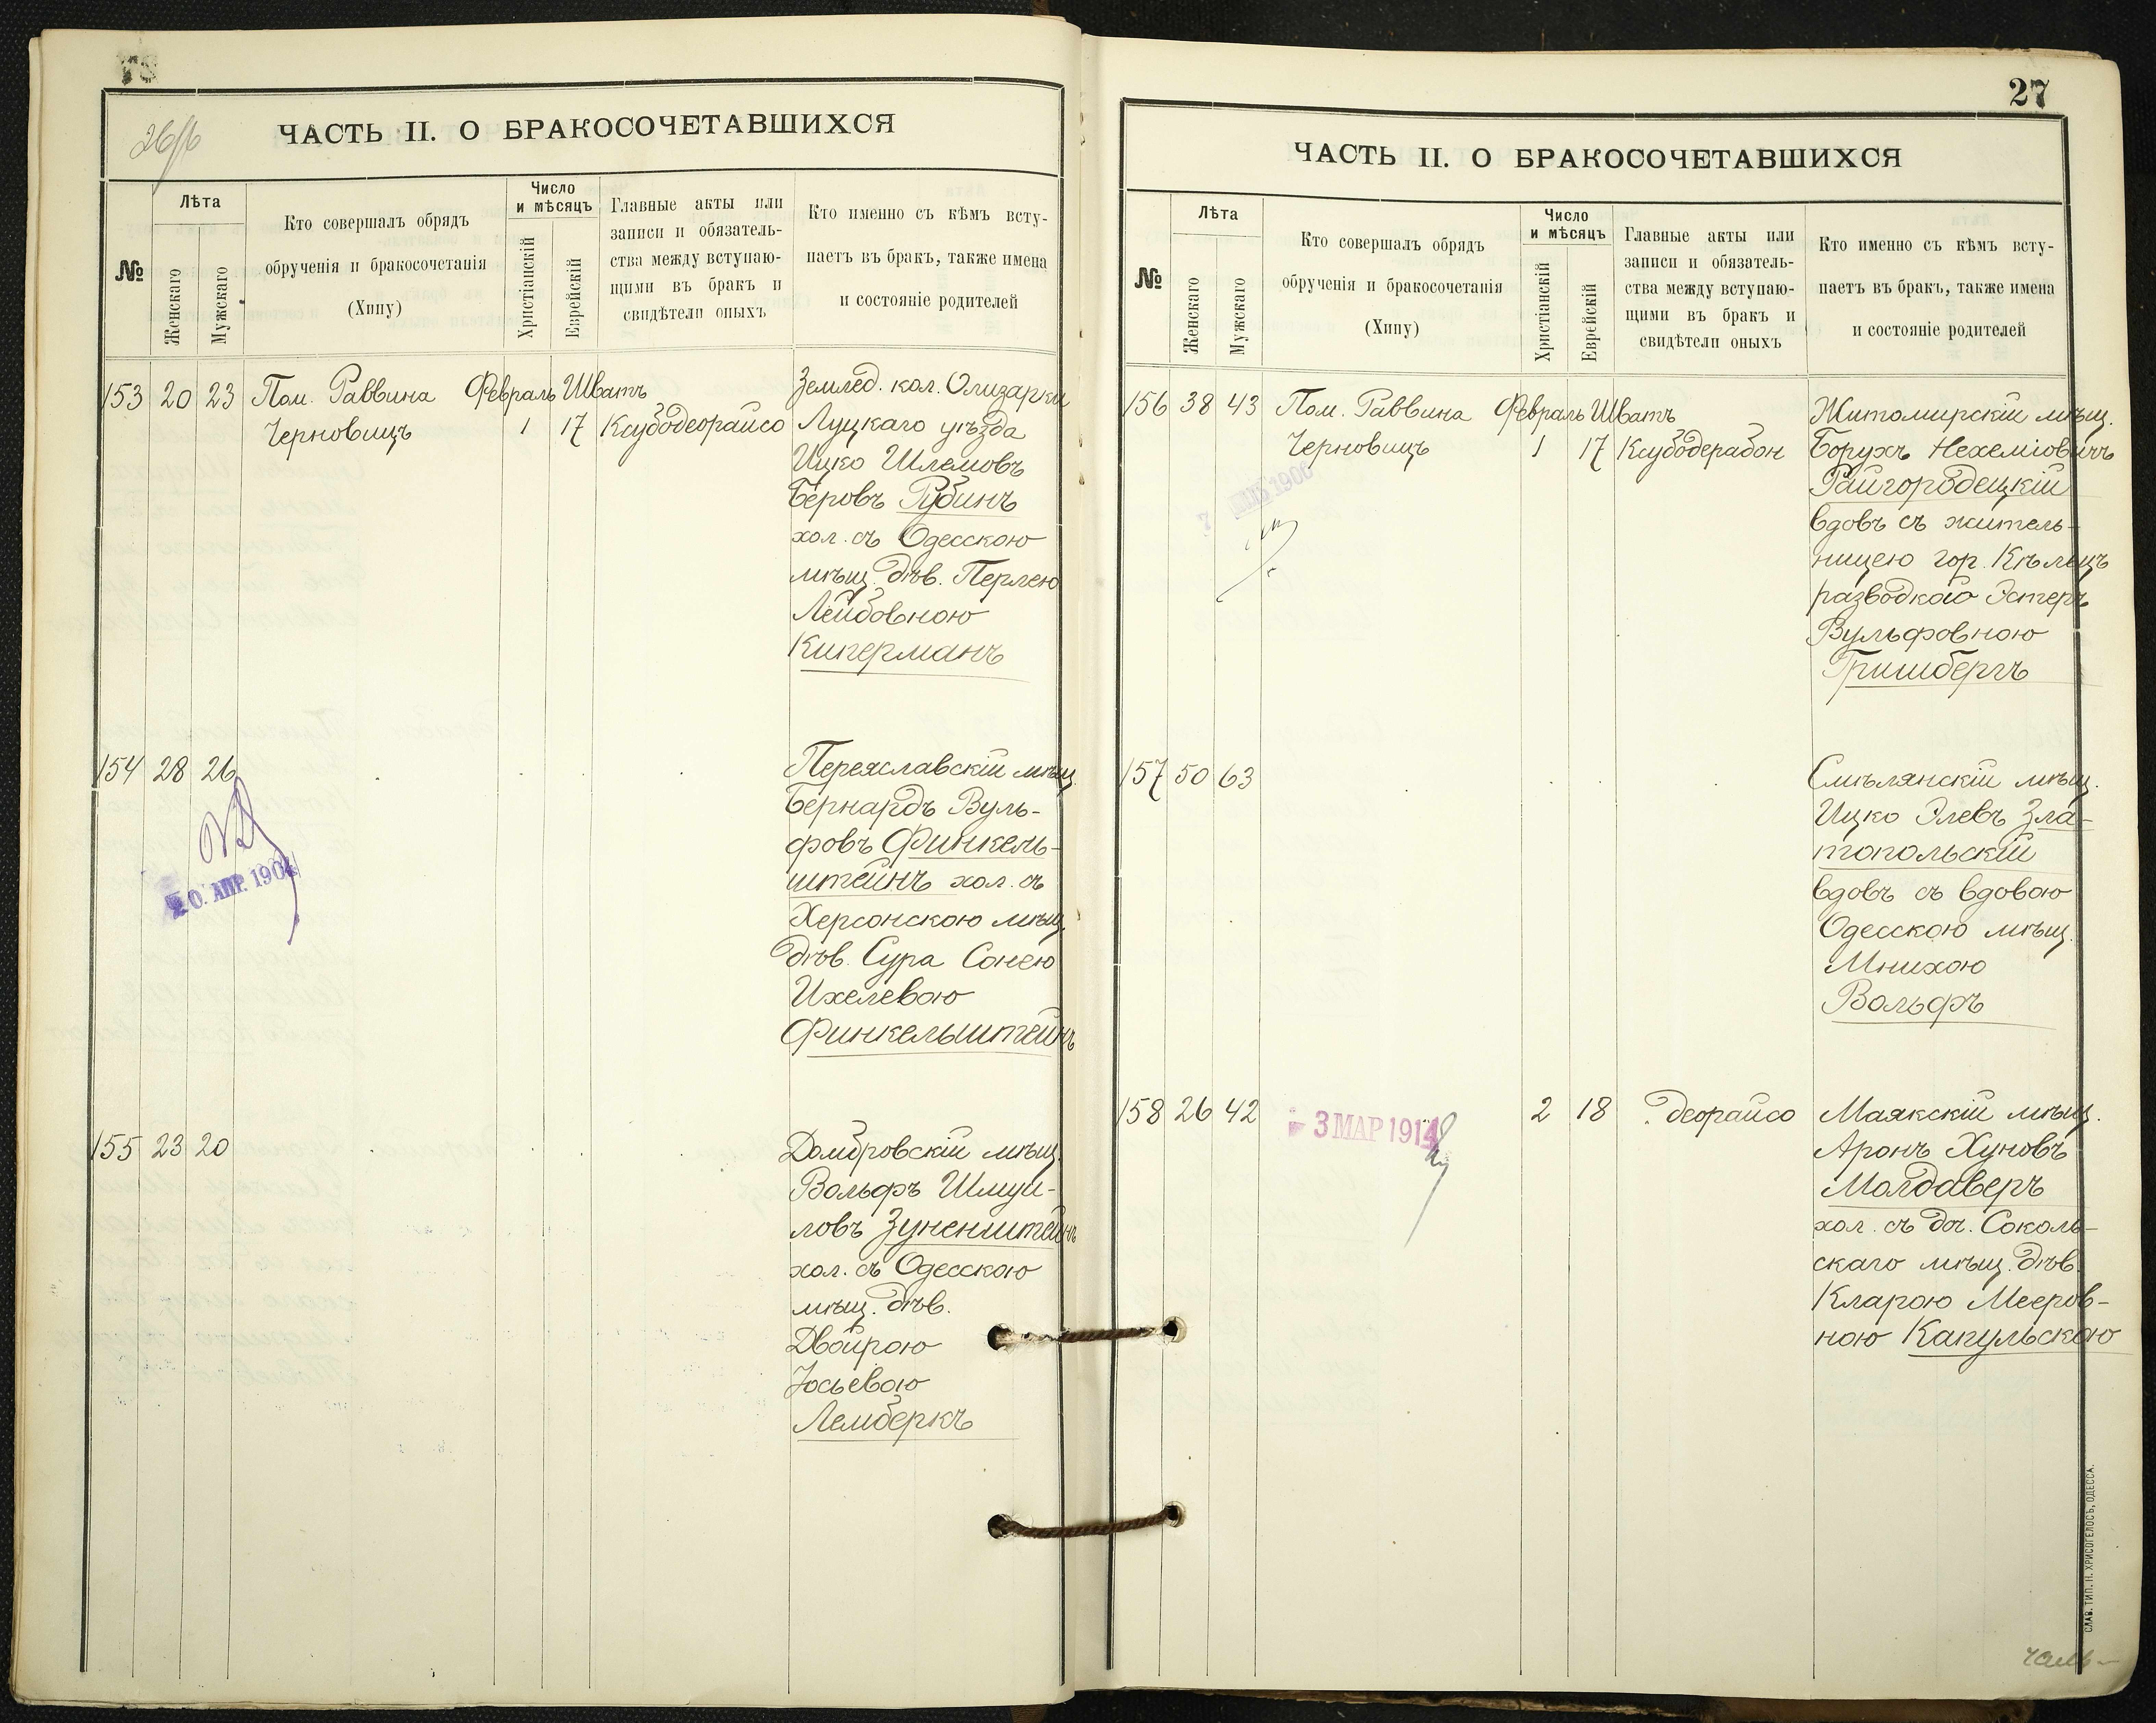 26/б
ЧАСТЬ II. О БРАКОСОЧЕТАВШИХСЯ
№
Лѣта
Женскаго
Мужскаго
Кто совершалъ обрядъ
обрученія и бракосочетанія
(Хипу)
Число
и мѣсяцъ
Христіанскій
Еврейскій
Главные акты или
записи и обязатель-
ства между вступаю-
щими въ бракъ и
свидѣтели оныхъ
Кто именно съ кѣмъ всту-
паетъ въ бракъ, также имена
и состояніе родителей
153 20 23 Пом. Раввина Февраль Шватъ
Черновицъ 1 17 Ксубодеорайсо
Землед. кол. Олизарки
Луцкаго уѣзда
Ицко Шлемовъ
Беровъ Рубинъ
хол. съ Одесскою
мѣщ. дѣв. Перлею
Лейбовною
Киперманъ
154 28 26
20. АПР. 1904
Переяславскій мѣщ.
Бернардъ Вуль-
фовъ Финкель-
штейнъ хол. съ
Херсонскою мѣщ.
дѣв. Сура Сонею
Ихелевою
Финкельштейнъ
155 23 20
Домбровскій мѣщ.
Вольфъ Шмуи-
ловъ Зуненштейнъ
хол. съ Одесскою
мѣщ. дѣв.
Двойрою
Юсьевою
Лемберкъ
27
ЧАСТЬ II. О БРАКОСОЧЕТАВШИХСЯ
№
Лѣта
Женскаго
Мужскаго
Кто совершалъ обрядъ
обрученія и бракосочетанія
(Хипу)
Число
и мѣсяцъ
Христіанскій
Еврейскій
Главные акты или
записи и обязатель-
ства между вступаю-
щими въ бракъ и
свидѣтели оныхъ
Кто именно съ кѣмъ всту-
паетъ въ бракъ, также имена
и состояніе родителей
156 38 43 Пом. Раввина Февраль Шватъ
Черновицъ 1 17 Ксубодерабон
Житомирскій мѣщ.
Борухъ Нехеміовичъ
Райгородецкій
вдовъ съ житель-
ницею гор. Кѣлецъ
разводкою Эстеръ
Вульфовною
Гришбергъ
157 50 63
Смѣлянскій мѣщ.
Ицко Элевъ Зла-
топольскій
вдовъ съ вдовою
Одесскою мѣщ.
Мнихою
Вольфъ
158 26 42
3 МАР 1914
2 18 деорайсо
Маякскій мѣщ.
Аронъ Хуновъ
Молдаверъ
хол. съ доч. Соколь-
скаго мѣщ. дѣв.
Кларою Мееров-
ною Кагульскою
СЛАВ. ТИП. Н. ХРИСОГЕЛОСЪ, ОДЕССА.